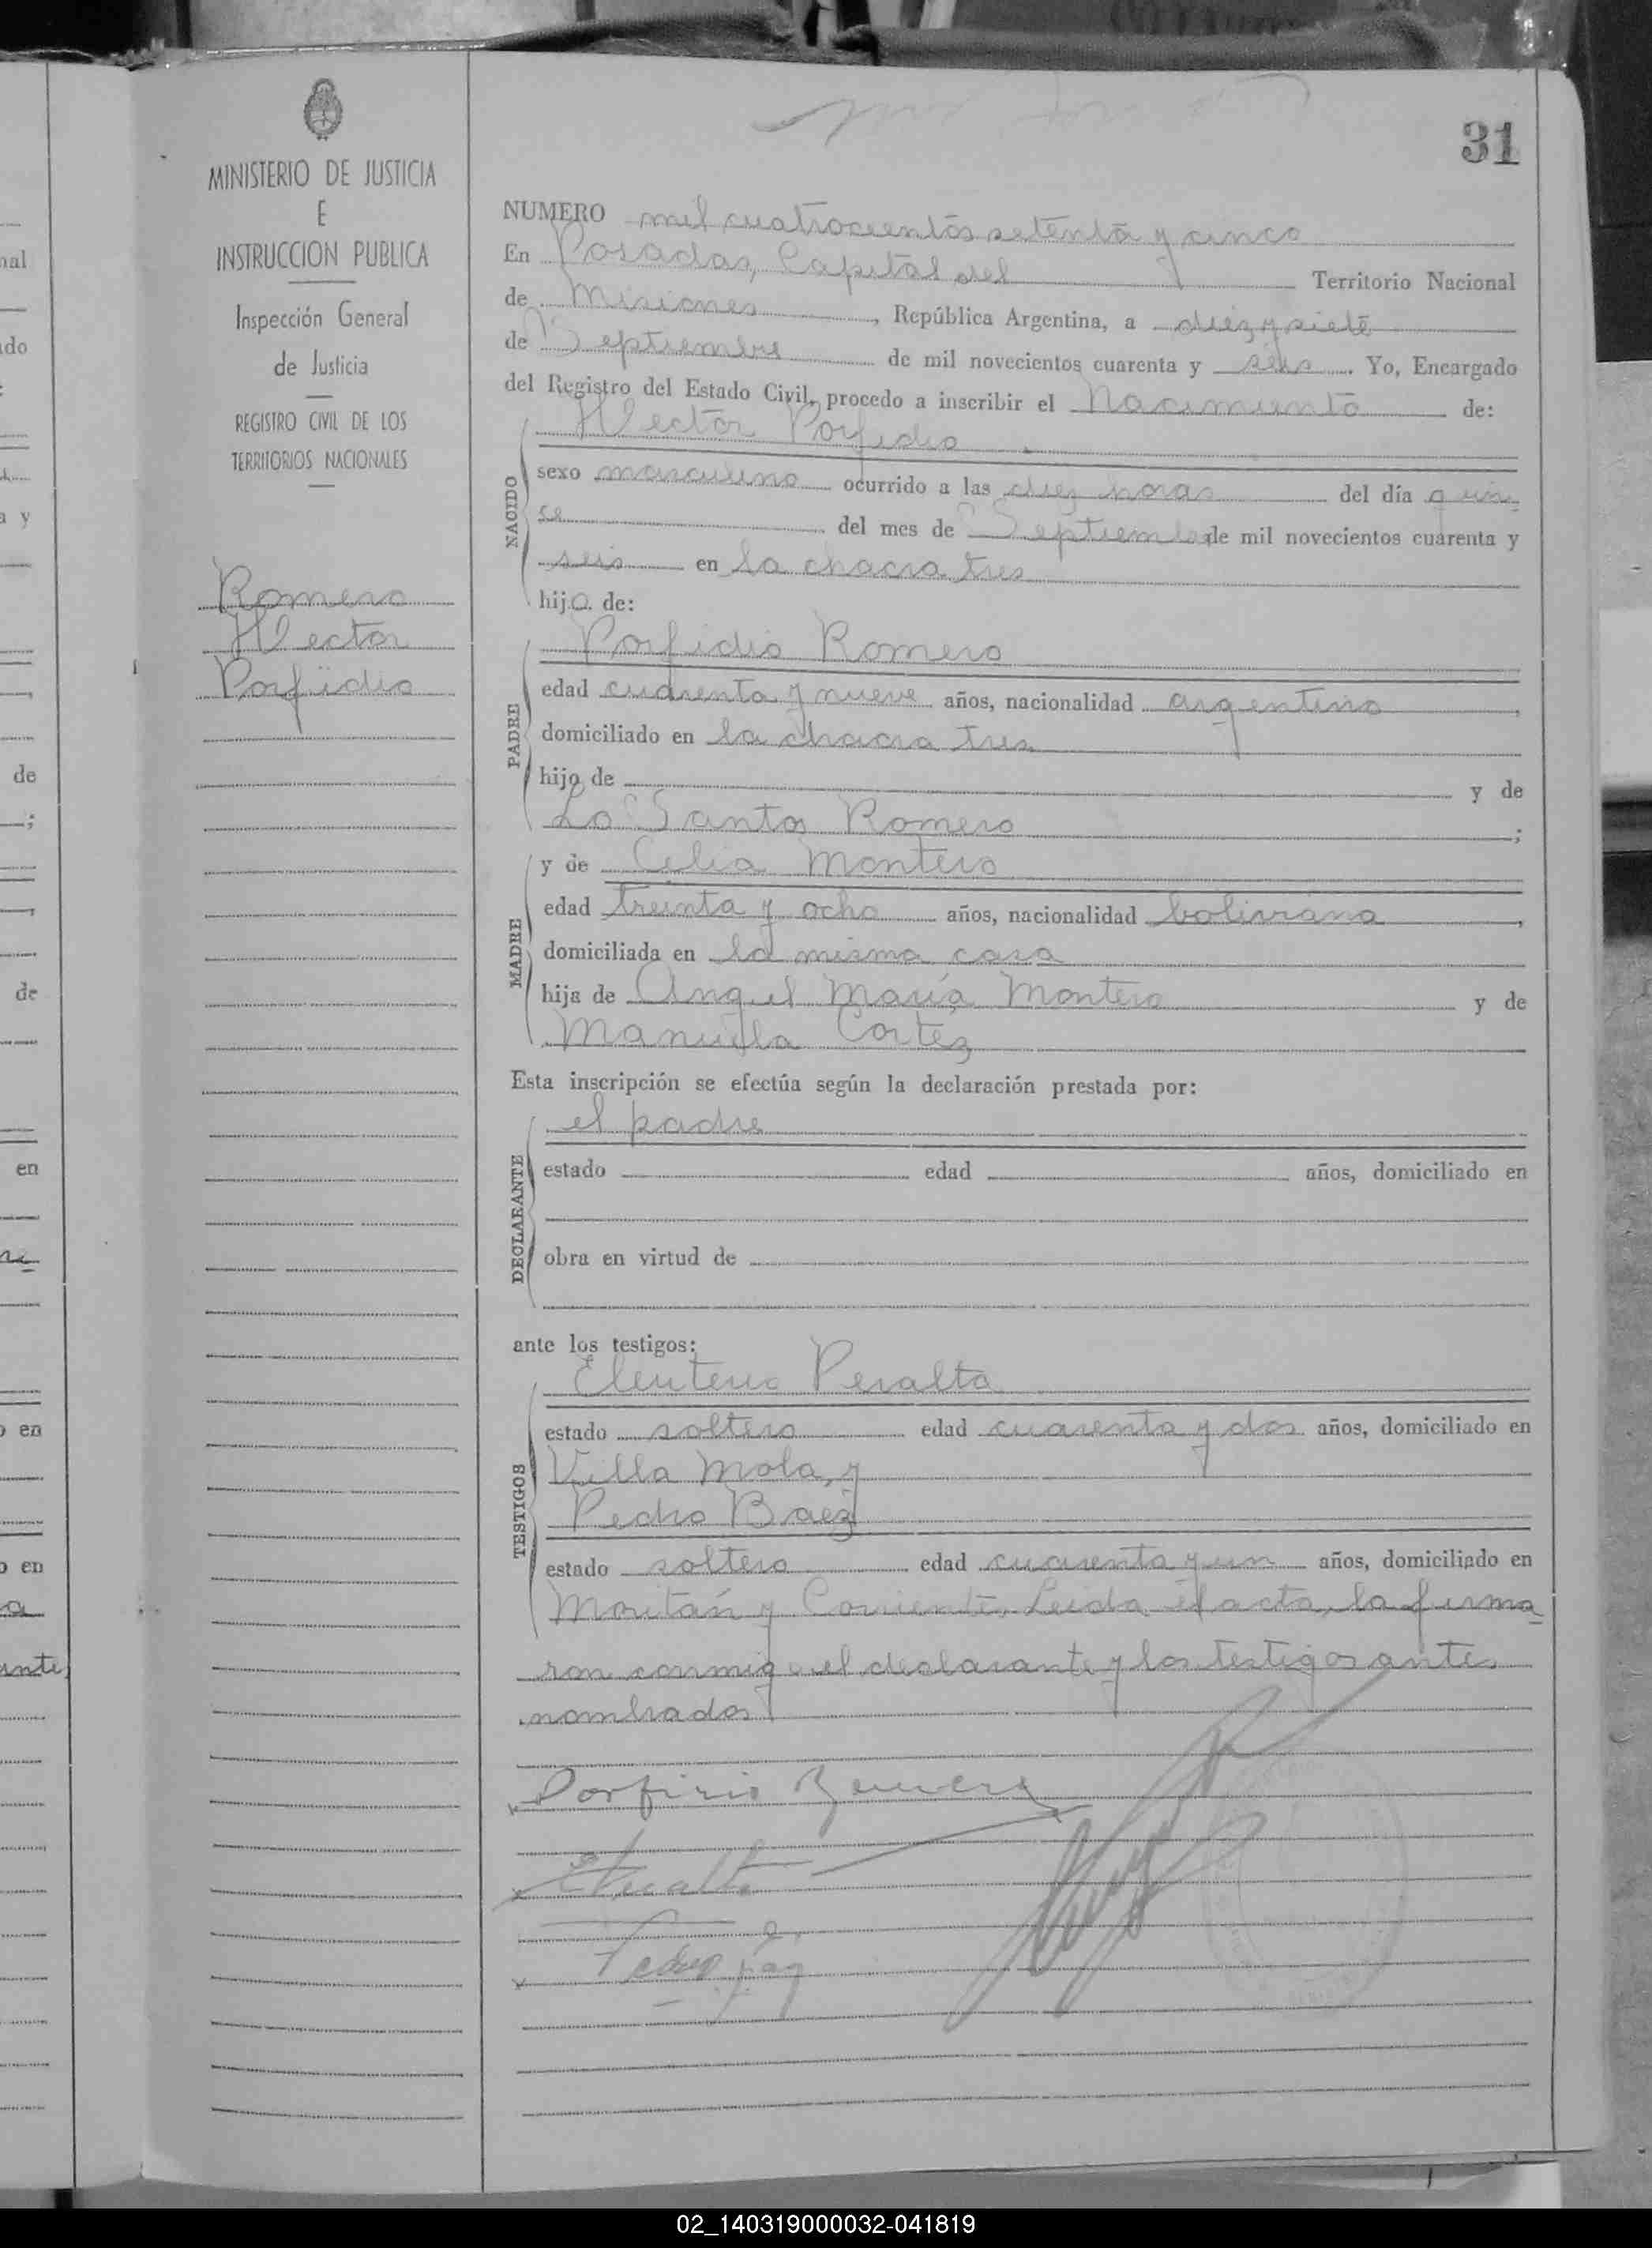 31
MINISTERIO DE JUSTICIA
E
INSTRUCCION PUBLICA
Inspección General
de Justicia
REGISTRO CIVIL DE LOS
TERRITORIOS NACIONALES
Romero
Hector
Porfidio
NUMERO mil cuatrocientos setenta y cinco
En Posadas, Capital del Territorio Nacional
de Misiones, República Argentina, a diez y siete
de Septiembre de mil novecientos cuarenta y seis. Yo, Encargado
del Registro del Estado Civil, procedo a inscribir el Nacimiento de:
NACIDO
Hector Porfidio
sexo masculino ocurrido a las diez horas del día quin-
se del mes de Septiembre de mil novecientos cuarenta y
seis en la chacra tres
hijo de:
PADRE
Porfidio Romero
edad cuarenta y nueve años, nacionalidad argentino,
domiciliado en la chacra tres
hijo de y de
Lo Santos Romero;
MADRE
y de Celia Montero
edad treinta y ocho años, nacionalidad boliviana,
domiciliada en la misma casa
hija de Angel María Montero y de
Manuela Cortez
Esta inscripción se efectúa según la declaración prestada por:
DECLARANTE
el padre
estado edad años, domiciliado en
obra en virtud de
ante los testigos:
TESTIGOS
Eleuterio Peralta
estado soltero edad cuarenta y dos años, domiciliado en
Villa Mola, y
Pedro Baez
estado soltero edad cuarenta y un años, domiciliado en
y Corriente. Leida el acta, la firma-
ron conmigo el declarante y los testigos antes
nombrados
Porfirio Romero
EPeralta
Pedro
de
de
en
en
en
02_140319000032-041819